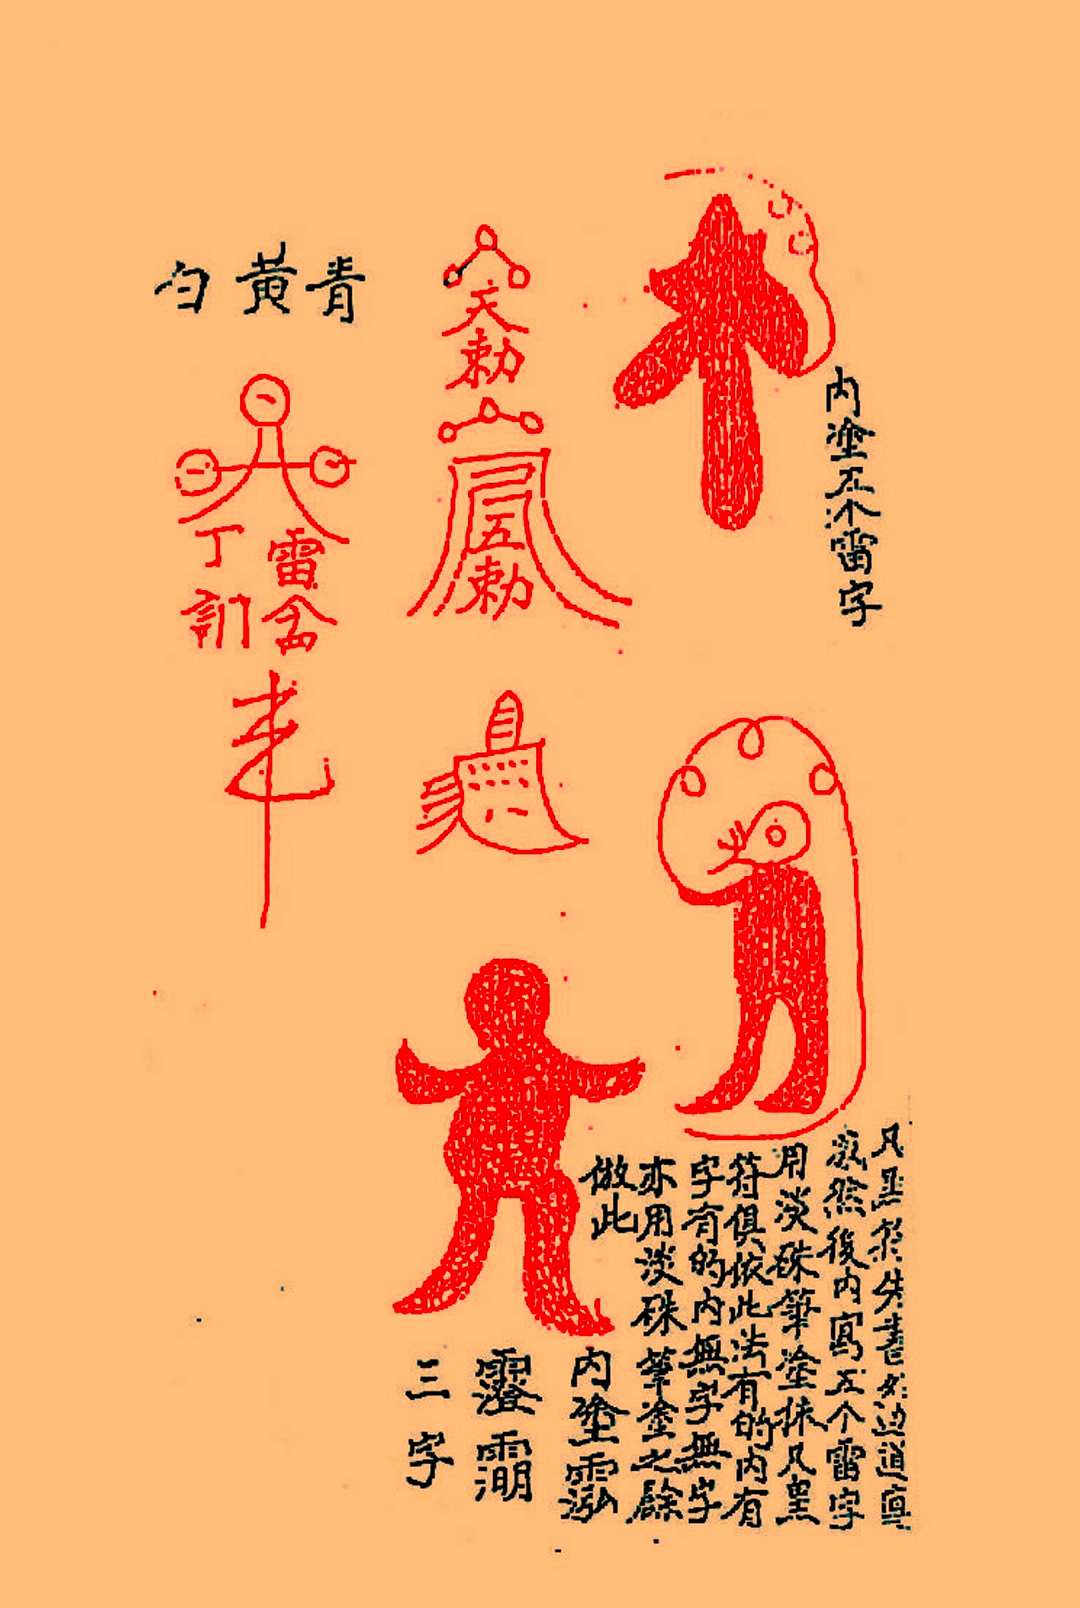 内塗五个雷字
天勅
五勅
青黃勻
雷
丁
凡黑符先書外边道
然後内寫五个雷字
用淡硃筆塗抹凡黑
符俱依此法有的内有
字有的内無字無字
亦用淡硃筆塗之餘
倣此
内塗
三字